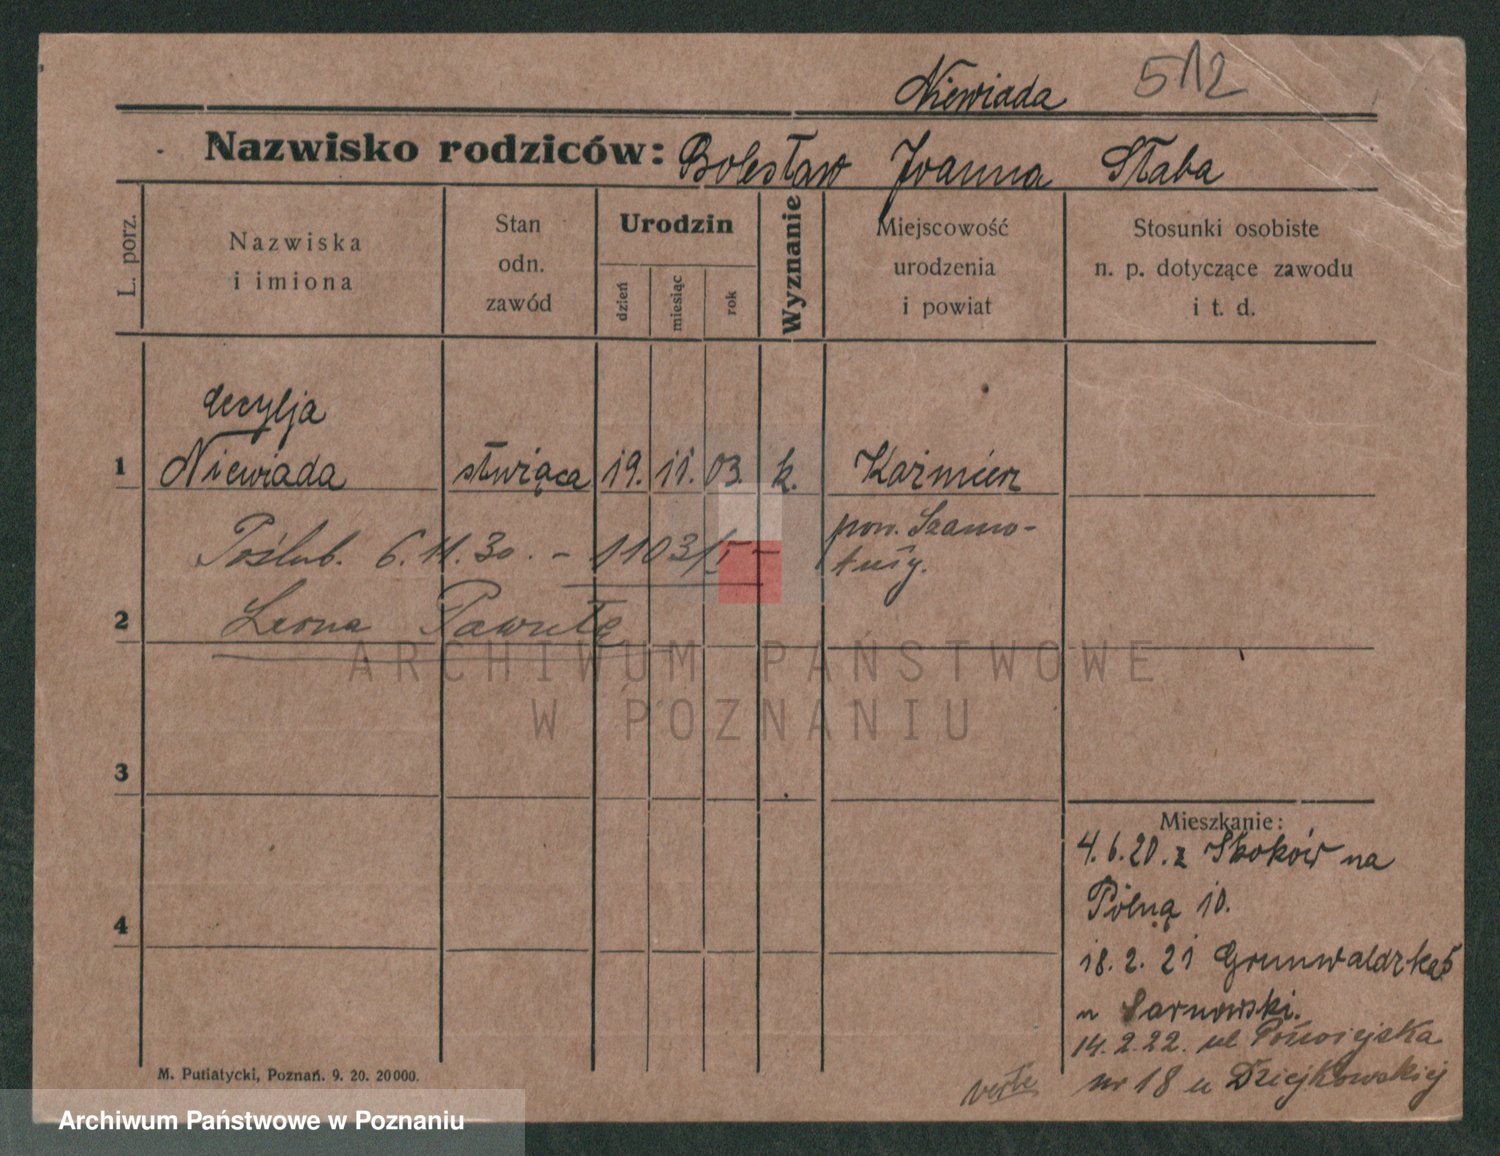 Niewiada 512
Nazwisko rodziców: Bolesław Joanna Słaba
L. porz.
Nazwiska
i imiona
Stan
odn.
zawód
Urodzin
dzień
miesiąc
rok
Wyznanie
Miejscowość
urodzenia
i powiat
Stosunki osobiste
n. p. dotyczące zawodu
i t. d.
Cecylja
1 Niewiada służąca 19. 11. 03. k. Kaźmierz
pow. Szamo-
tuły.
Poślub. 6.11.30. - 1103/
2 Leona Pawułę
ARCHIWUM PAŃSTWOWE
W POZNANIU
3
4
Mieszkanie:
4.6.20. z Skoków na
Pólną 10.
18.2.21 Grunwaldzka 5
u Sarnowski.
14.2.22. ul Półwiejska
nr 18 u Dziejkowskiej
verte
M. Putiatycki, Poznań. 9. 20. 20000.
Archiwum Państwowe w Poznaniu